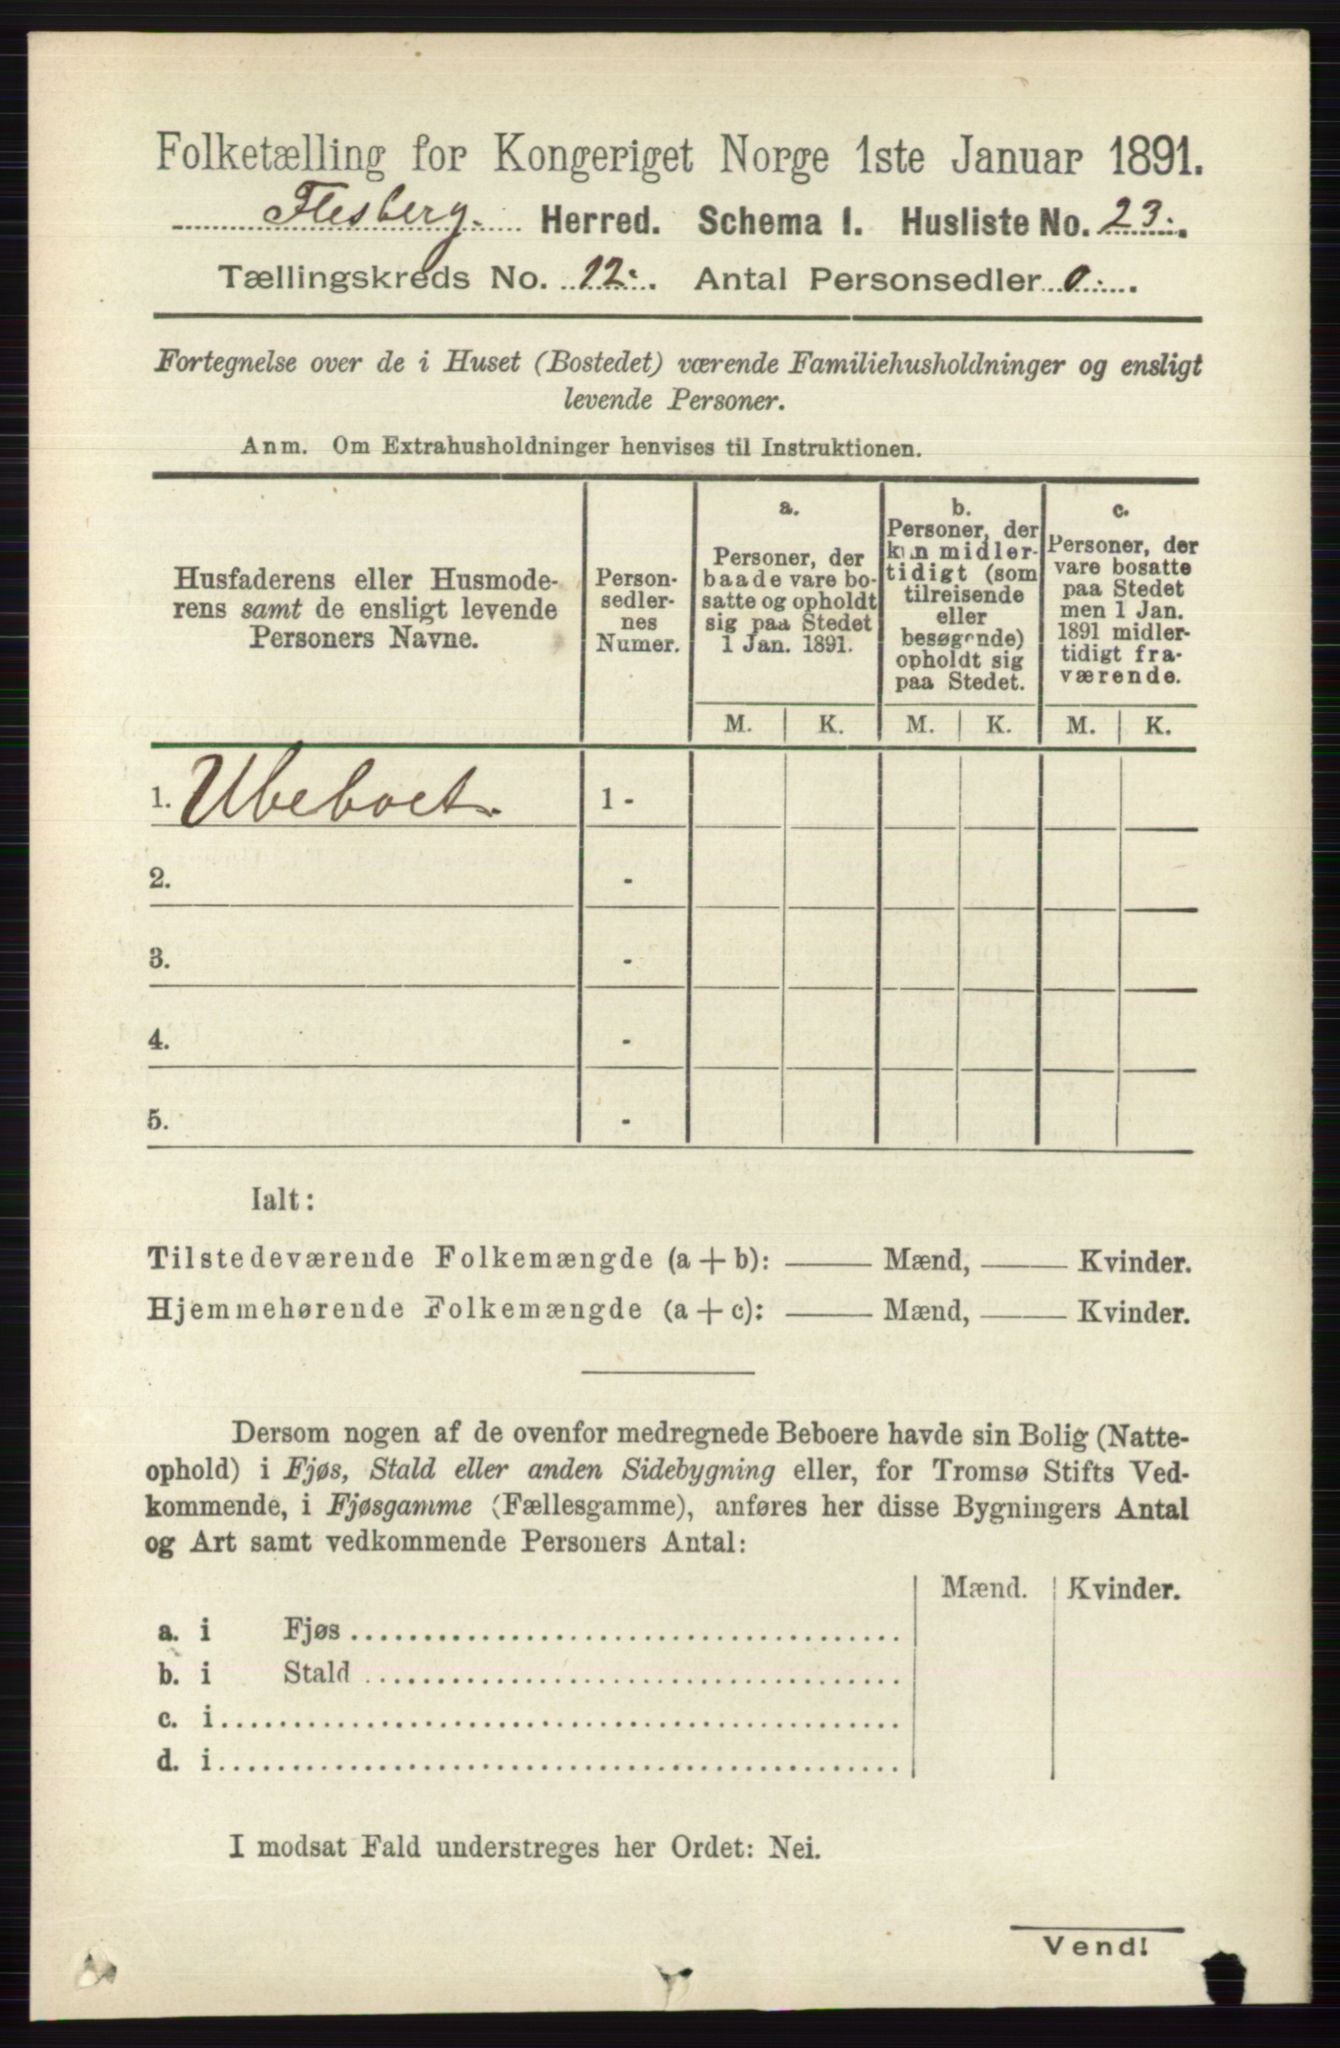 Folketælling for Kongeriget Norge 1ste Januar 1891.
Flesberg. Herred. Schema I. Husliste No. 23.
Tællingskreds No. 12. Antal Personsedler 0.
Fortegnelse over de i Huset (Bostedet) værende Familiehusholdninger og ensligt
levende Personer.
Anm. Om Extrahusholdninger henvises til Instruktionen.
Husfaderens eller Husmode-
rens samt de ensligt levende
Personers Navne.
Person-
sedler-
nes
Numer.
a.
Personer, der
baade vare bo-
satte og opholdt
sig paa Stedet
1 Jan. 1891.
b.
Personer, der
kun midler-
tidigt (som
tilreisende
eller
besøgende)
opholdt sig
paa Stedet.
c.
Personer, der
vare bosatte
paa Stedet
men 1 Jan.
1891 midler-
tidigt fra-
værende.
M. K. M. K. M. K.
1. Ubeboet. 1 -
2. -
3. -
4. -
5. -
Ialt:
Tilstedeværende Folkemængde (a + b): —— Mænd, —— Kvinder.
Hjemmehørende Folkemængde (a + c): —— Mænd, —— Kvinder.
Dersom nogen af de ovenfor medregnede Beboere havde sin Bolig (Natte-
ophold) i Fjøs, Stald eller anden Sidebygning eller, for Tromsø Stifts Ved-
kommende, i Fjøsgamme (Fællesgamme), anføres her disse Bygningers Antal
og Art samt vedkommende Personers Antal:
Mænd. Kvinder.
a. i Fjøs
b. i Stald
c. i
d. i
I modsat Fald understreges her Ordet: Nei.
Vend!